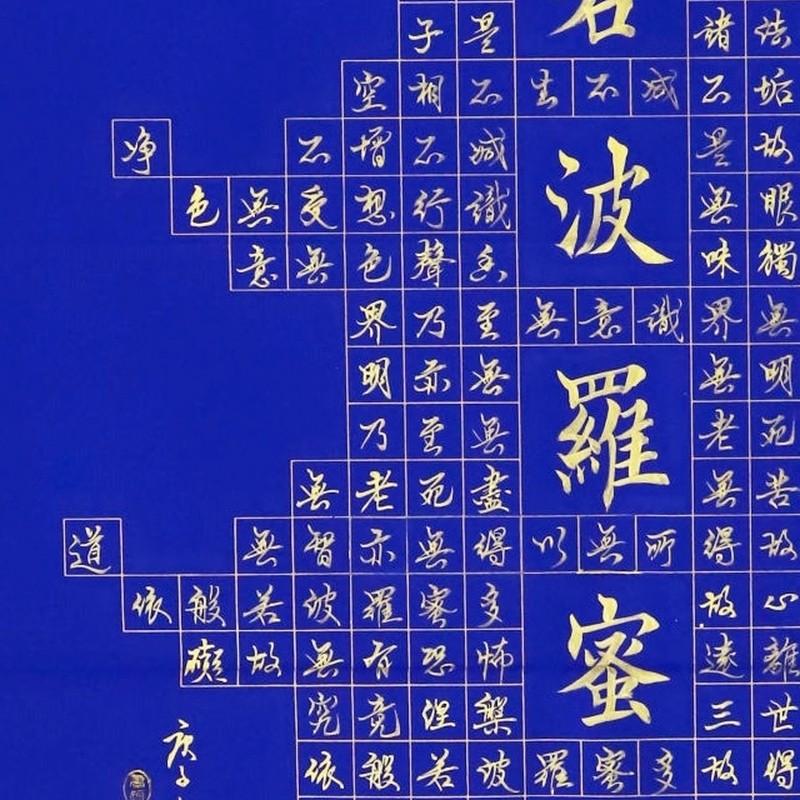 子是諸法
空相不生不滅不垢
净不增不減是故
色無受想行識無眼
意無色聲香味觸
界乃至無意識界無
明亦無無明
乃至無老死
無老死盡無苦
道無智亦無得以無所得故
依般若波羅蜜多故心
礙故無有恐怖遠離
究竟涅槃三世
依般若波羅蜜多故得
若波羅蜜
庚子